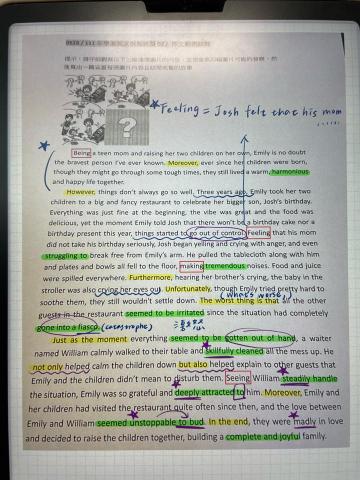 Feeling = Josh felt that his mom
......
Being a teen mom and raising her two children on her own, Emily is no doubt
the bravest person I've ever known. Moreover, ever since her children were born,
though they might go through some tough times, they still lived a warm, harmonious
and happy life together.
However, things don't always go so well. Three years ago, Emily took her two
children to a big and fancy restaurant to celebrate her bigger son, Josh's birthday.
Everything was just fine at the beginning, the vibe was great and the food was
delicious, yet the moment Emily told Josh that there won't be a birthday cake nor a
birthday present this year, things started to go out of control. Feeling that his mom
did not take his birthday seriously, Josh began yelling and crying with anger, and even
struggling to break free from Emily's arm. He pulled the tablecloth along with him
and plates and bowls all fell to the floor, making tremendous noises. Food and juice
were spilled everywhere. Furthermore, hearing her brother's crying, the baby in the
stroller was also crying her eyes out. Unfortunately, though Emily tried pretty hard to
(What's worse,)
soothe them, they still wouldn't settle down. The worst thing is that all the other
guests in the restaurant seemed to be irritated since the situation had completely
gone into a fiasco. (catastrophe)
Just as the moment everything seemed to be gotten out of hand, a waiter
named William calmly walked to their table and skillfully cleaned all the mess up. He
not only helped calm the children down but also helped explain to other guests that
Emily and the children didn't mean to disturb them. Seeing William steadily handle
the situation, Emily was so grateful and deeply attracted to him. Moreover, Emily and
her children had visited the restaurant quite often since then, and the love between
Emily and William seemed unstoppable to bud. In the end, they were madly in love
and decided to raise the children together, building a complete and joyful family.